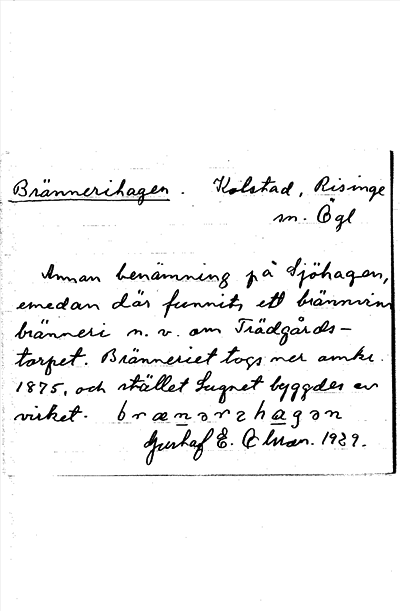 Brännerihagen. Kolstad, Risinge
sn. Ögl
Annan benämning på Sjöhagen,
emedan där funnits ett brännvins
bränneri n. v. om Trädgårds-
torpet. Bränneriet togs ner omkr.
1875, och stället Lugnet byggdes av
virket. brænərehagən
Gustaf E. 1929.